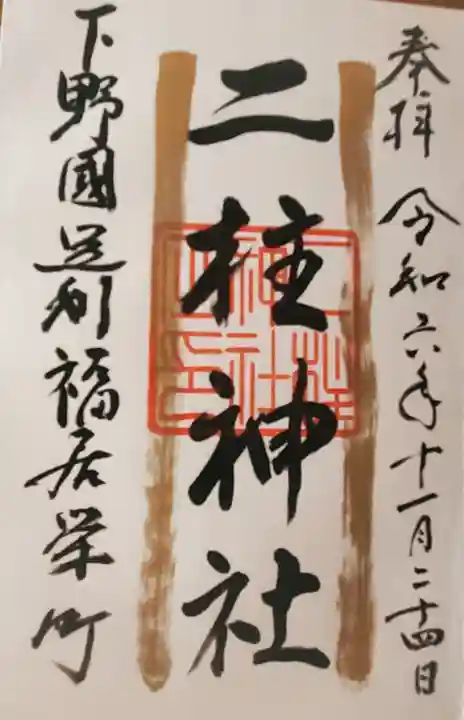 奉拝 令和六年十一月二十四日
二柱神社
下野國足利福居栄町